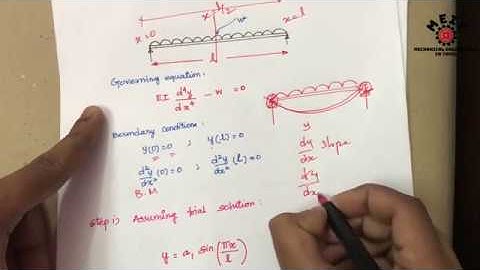 x = l/2
x=0
w
x=l
l
Governing equation:
EI d⁴y/dx⁴ - w = 0
Boundary conditions:
y(0)=0 ; y(l)=0
d²y/dx² (0)=0 ; d²y/dx² (l)=0
B.M
y
dy/dx slope
d²y/dx
Step i: Assuming trial solution:
y = a₁ sin(πx/l)
MECH